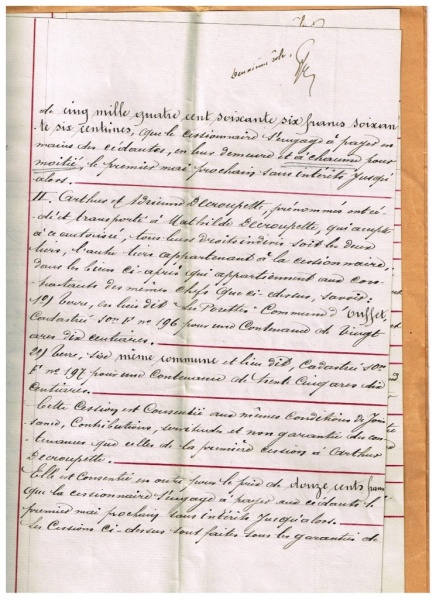 deuxième rôle
de cinq mille quatre cent soixante six francs soixan
te six centimes, que le cessionnaire s'engage à payer en
mains des cédantes, en leur demeure et à chacune pour
moitié, le premier mai prochain sans intérêts jusqu'
alors.
II. Arthur et Adrienne Decroupette, prénommés ont cé-
dé et transporté à Mathilde Decroupette, qui accepte
à ce autorisée, tous leurs droits indivis soit les deux
tiers, l'autre tiers appartenant à la cessionnaire,
dans les biens ci-après qui appartiennent aux com-
parants des mêmes chefs que ci-dessus, savoir:
1º) terre, en lieu dit Les Commune d'Ouffet
Cadastré son F nº 196 pour une Contenance de Vingt
ares dix centiares.
2º) terre, sise même commune et lieu dit, Cadastré son
F nº 197 pour une Contenance de trente Cinq ares dix
centiares.
Cette Cession est Consentie aux mêmes Conditions de Jouis
sance, Contributions, servitudes et non garantie de con
tenances que celles de la première cession à Arthur
Decroupette.
Elle est Consentie en outre pour le prix de douze cents francs
que la cessionnaire s'engage à payer aux cédants le
premier mai prochain sans intérêts jusqu'alors.
Les Cessions ci-dessus sont faites sous les garanties de